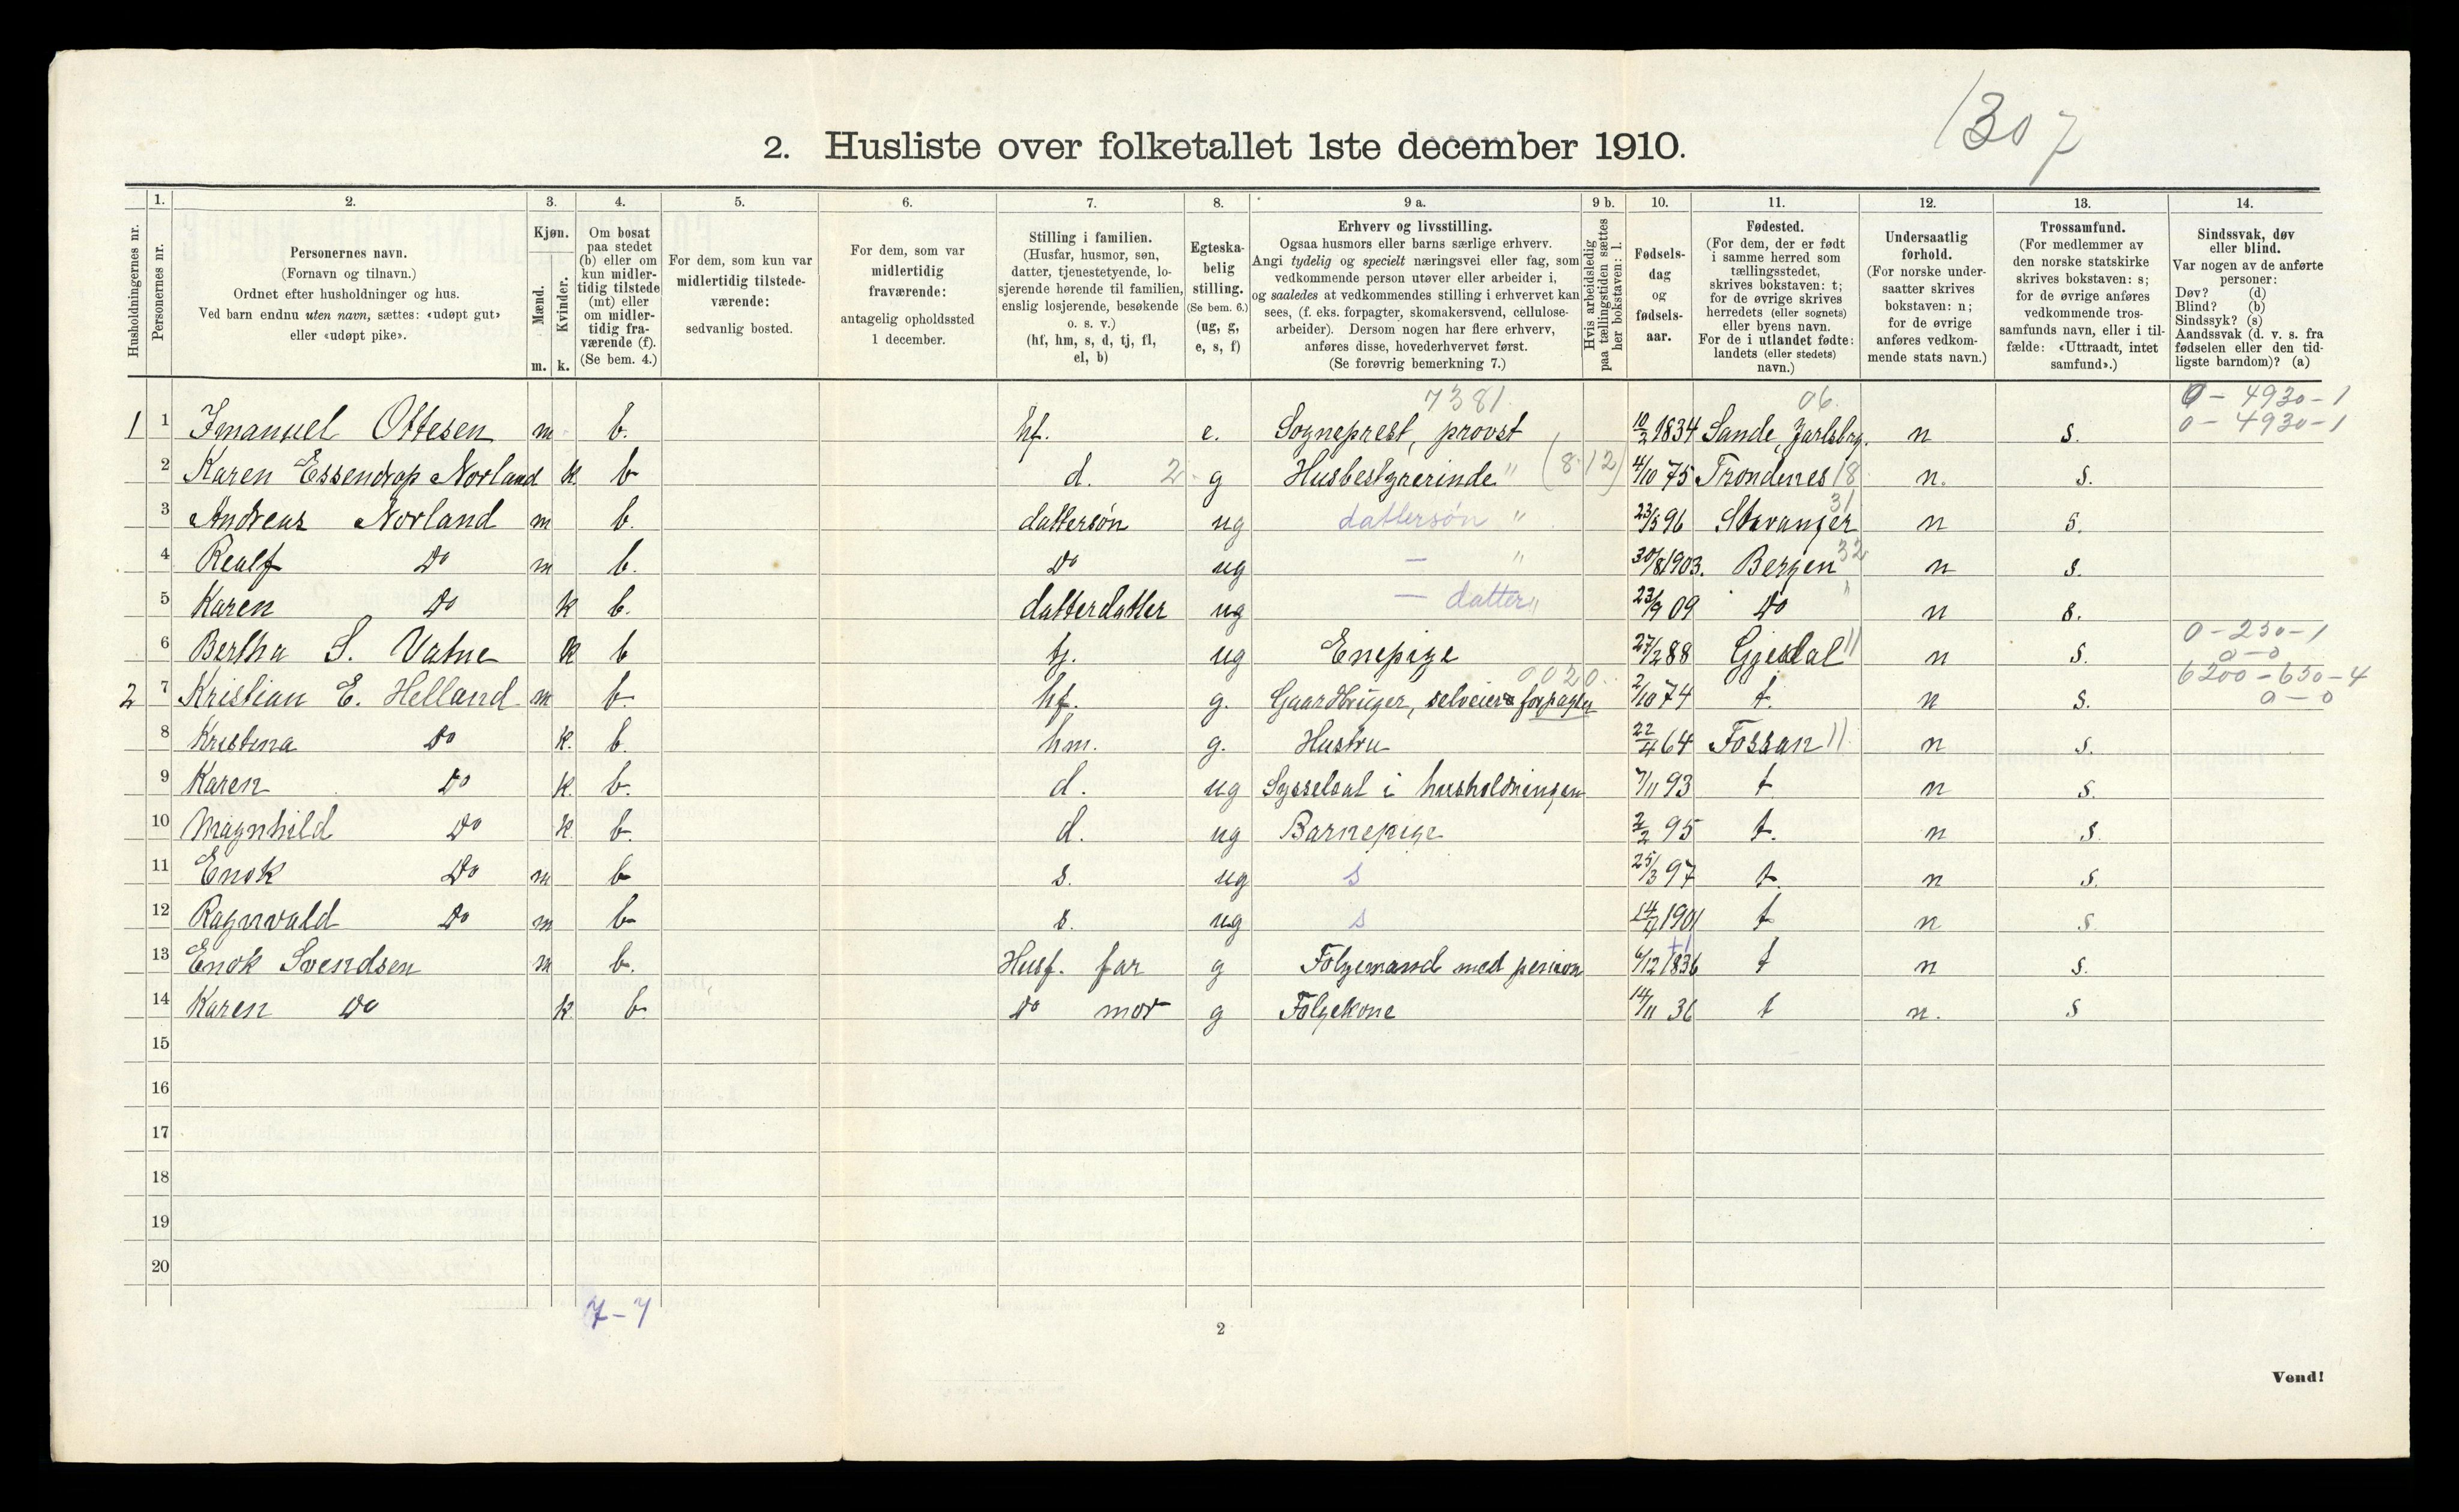 1307
2. Husliste over folketallet 1ste december 1910.
Husholdningernes nr.
1.
Personernes nr.
2.
Personernes navn.
(Fornavn og tilnavn.)
Ordnet efter husholdninger og hus.
Ved barn endnu uten navn, sættes: «udøpt gut»
eller «udøpt pike».
3.
Kjøn.
Mænd.
Kvinder.
m. k.
4.
Om bosat
paa stedet
(b) eller om
kun midler-
tidig tilstede
(mt) eller
om midler-
tidig fra-
værende (f).
(Se bem. 4.)
5.
For dem, som kun var
midlertidig tilstede-
værende:
sedvanlig bosted.
6.
For dem, som var
midlertidig
fraværende:
antagelig opholdssted
1 december.
7.
Stilling i familien.
(Husfar, husmor, søn,
datter, tjenestetyende, lo-
sjerende hørende til familien,
enslig losjerende, besøkende
o. s. v.)
(hf, hm, s, d, tj, fl,
el, b)
8.
Egteska-
belig
stilling.
(Se bem. 6.)
(ug, g,
e, s, f)
9 a.
Erhverv og livsstilling.
Ogsaa husmors eller barns særlige erhverv.
Angi tydelig og specielt næringsvei eller fag, som
vedkommende person utøver eller arbeider i,
og saaledes at vedkommendes stilling i erhvervet kan
sees, (f. eks. forpagter, skomakersvend, cellulose-
arbeider). Dersom nogen har flere erhverv,
anføres disse, hovederhvervet først.
(Se forøvrig bemerkning 7.)
9 b.
Hvis arbeidsledig
paa tællingstiden sættes
her bokstaven: l.
10.
Fødsels-
dag
og
fødsels-
aar.
11.
Fødested.
(For dem, der er født
i samme herred som
tællingsstedet,
skrives bokstaven: t;
for de øvrige skrives
herredets (eller sognets)
eller byens navn.
For de i utlandet fødte:
landets (eller stedets)
navn.)
12.
Undersaatlig
forhold.
(For norske under-
saatter skrives
bokstaven: n;
for de øvrige
anføres vedkom-
mende stats navn.)
13.
Trossamfund.
(For medlemmer av
den norske statskirke
skrives bokstaven: s;
for de øvrige anføres
vedkommende tros-
samfunds navn, eller i til-
fælde: «Uttraadt, intet
samfund».)
14.
Sindssvak, døv
eller blind.
Var nogen av de anførte
personer:
Døv? (d)
Blind? (b)
Sindssyk? (s)
Aandssvak (d. v. s. fra
fødselen eller den tid-
ligste barndom)? (a)
7381. 06. 0 - 4930 - 1
1 1 Imanuel Ottesen m b. hf. e. Sogneprest, provst 10/2 1834 Sande, Jarlsbrg. n s. 0 - 4930 - 1
2 Karen Essendrop Norland k b d. 2 g Husbestyrerinde " (8.12) 4/10 75 Trondenes 18 n. s.
3 Andreas Norland m b. dattersøn ug dattersøn " 23/5 96 Stavanger 31 n s.
4 Realf Do m b. Do ug — " 30/8 1903. Bergen 32 n s.
5 Karen Do k b. datterdatter ug — datter " 23/9 09 Do " n s.
6 Bertha S. Vatne k b tj. ug Enepige 27/2 88 Gjesdal 11 n s. 0 - 230 - 1
0 - 0
0020. 6200 - 650 - 4
2 7 Kristian E. Helland m b. hf. g. Gaardbruger, selveier forpagter 2/10 74 t. n s. 0 - 0
8 Kristina Do k. b. hm. g. Hustru 22/4 64 Fossan 11 n s.
9 Karen Do k. b. d. ug Sysselsat i husholdningen 7/11 93 t n s.
10 Magnhild Do k b. d. ug Barnepige 2/2 95 t. n s.
11 Enok Do m b s. ug s 25/3 97 t. n s.
12 Ragnvald Do m b s. ug s 14/7 1901 t n s
13 Enok Svendsen m b. Husf. far g Følgemand med pension 6/12 1836 t n s.
14 Karen Do k b. Do mor g Følgekone 14/11 36 t n. s
15
16
17
18
19
20
7 - 7
2
Vend!